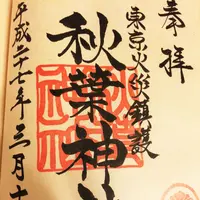 奉拝
東京火災鎮護
秋葉神社
平成二十七年三月十